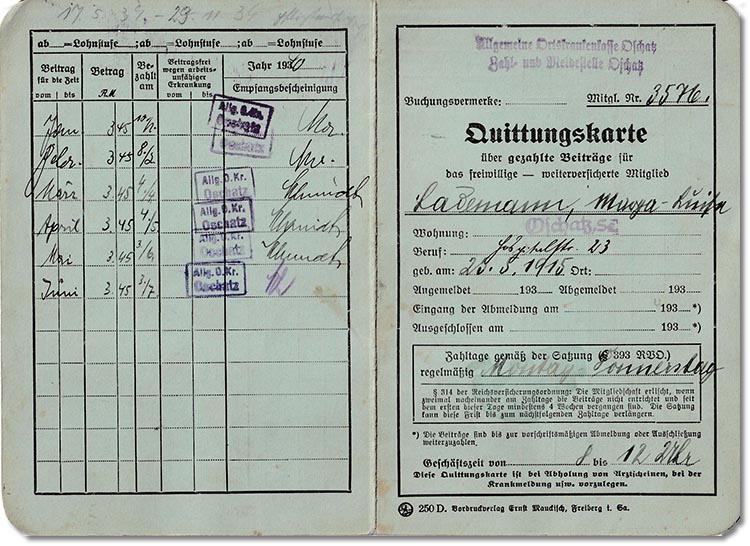 17.5.34. - 23.11.34
ab =Lohnstufe ; ab =Lohnstufe ; ab =Lohnstufe
Beitrag für die Zeit vom bis
Betrag RM
Bezahlt am
Beitragsfrei wegen arbeitsunfähiger Erkrankung vom bis
Jahr 1940
Empfangsbescheinigung
Jan. 3 45 10/2. Allg. O.Kr. Oschatz
Febr. 3 45 8/3. Oschatz
März 3 45 4/4 Allg. O.Kr. Oschatz Schmidt
April 3.45 4/5. Allg. O.Kr. Oschatz Schmidt
Mai 3.45 3/6. Allg. O.Kr. Oschatz Schmidt
Juni 3.45 3/7. Allg. O.Kr. Oschatz
Allgemeine Ortskrankenkasse Oschatz
Zahl- und Meldestelle Oschatz
Buchungsvermerke: Mitgl. Nr. 3576.
Quittungskarte
über gezahlte Beiträge für
das freiwillige — weiterversicherte Mitglied
Lademann,
Wohnung: Oschatz, SE
Beruf: Hospitalstr. 23
geb. am: 25.5.1915 Ort:
Angemeldet 193 Abgemeldet 193
Eingang der Abmeldung am 193 *)
Ausgeschlossen am 193 *)
Zahltage gemäß der Satzung (§ 393 RVO.)
regelmäßig Montag - Donnerstag
§ 314 der Reichsversicherungsordnung: Die Mitgliedschaft erlischt, wenn
zweimal nacheinander am Zahltage die Beiträge nicht entrichtet und seit
dem ersten dieser Tage mindestens 4 Wochen vergangen sind. Die Satzung
kann diese Frist bis zum nächstfolgenden Zahltage verlängern.
*) Die Beiträge sind bis zur vorschriftsmäßigen Abmeldung oder Ausschließung
weiterzuzahlen.
Geschäftszeit von 8 bis 12 Uhr
Diese Quittungskarte ist bei Abholung von Arztscheinen, bei der
Krankmeldung usw. vorzulegen.
250 D. Vordruckverlag Ernst Mauckisch, Freiberg i. Sa.